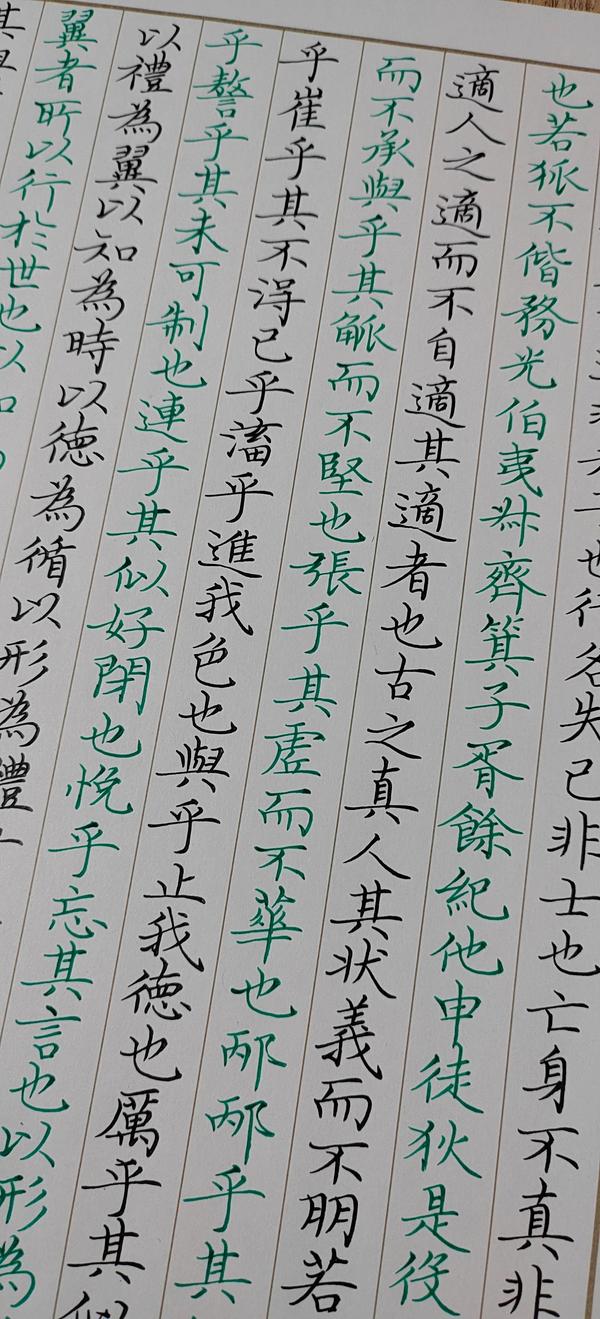 也行名失已非士也亡身不真非
也若狐不偕務光伯夷叔齊箕子胥餘紀他申徒狄是役
適人之適而不自適其適者也古之真人其状義而不朋若
而不承與乎其觚而不堅也張乎其虛而不華也邴邴乎其
乎崔乎其不得已乎滀乎進我色也與乎止我德也厲乎其似
乎謷乎其未可制也連乎其似好閉也悗乎忘其言也以形為
以禮為翼以知為時以德為循以形為禮
翼者所以行於世也以知